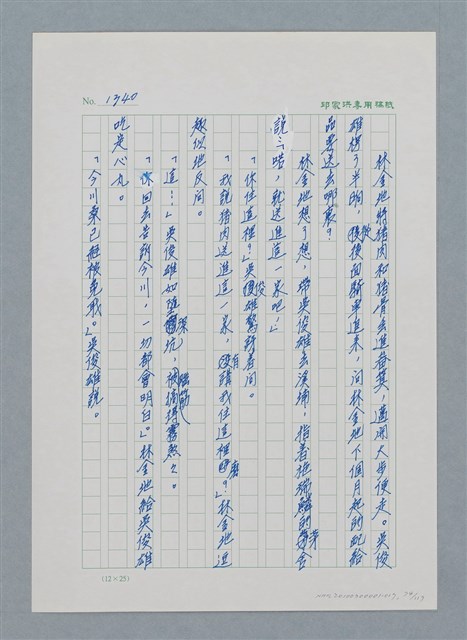 No. 1340
邱家洪專用稿紙
林金地將豬肉和豬骨丟進畚箕，邁開大步便走。吳俊
雄楞了半晌，從後面騎單車追來，問林金地下個月起的配給
品要送去哪裡？
林金地想了想，帶吳俊雄去溪埔，指著施瑞麟的茅舍
說：「喏，就送進這一家吧，」
「你住這裡？」吳俊雄驚訝著問。
「我說豬肉送進這一家，有講我住這裡嗎？」林金地近
趣似地反問。
「這！」吳俊雄如墮深坑，被搞得霧煞々。
「你回去告訴今川，一切都會明白。」林金地給吳俊雄
吃定心丸。
「今川桑已經被免職。」吳俊雄說。
(12×25)